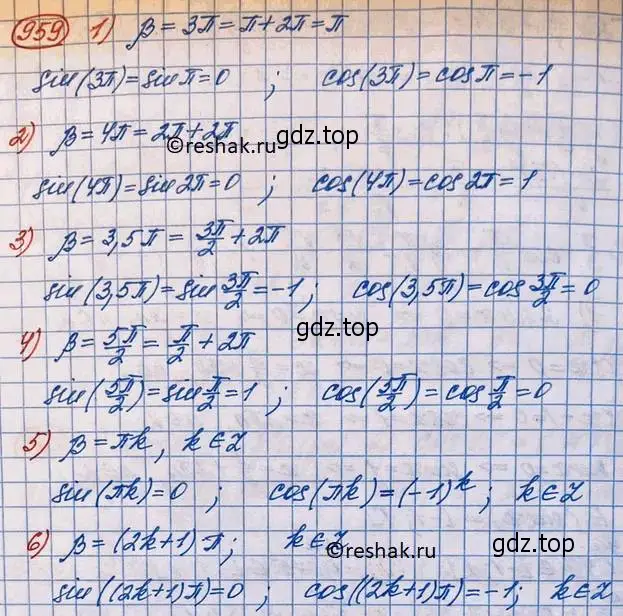 959 1) β = 3π = π + 2π = π
sin(3π) = sin π = 0 ; cos(3π) = cos π = -1
2) β = 4π = 2π + 2π
gdz.top
©reshak.ru
sin(4π) = sin 2π = 0 ; cos(4π) = cos 2π = 1
3) β = 3,5π = 3π/2 + 2π
sin(3,5π) = sin 3π/2 = -1 ; cos(3,5π) = cos 3π/2 = 0
gdz.top
4) β = 5π/2 = π/2 + 2π
sin(5π/2) = sin π/2 = 1 ; cos(5π/2) = cos π/2 = 0
5) β = πk, k ∈ Z
sin(πk) = 0 ; cos(πk) = (-1)^k ; k ∈ Z
6) β = (2k+1)π ; k ∈ Z
gdz.top
©reshak.ru
sin((2k+1)π) = 0 ; cos((2k+1)π) = -1 ; k ∈ Z